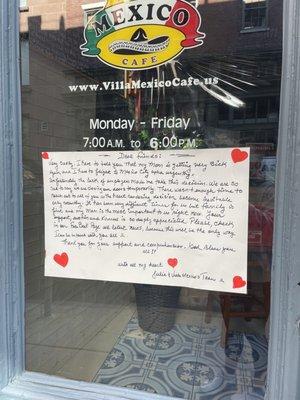 MEXICO
CAFE
www.VillaMexicoCafe.us
Monday - Friday
7:00 A.M. to 6:00 P.M.
Dear Amigos!
Very sadly, I have to tell you that my Mom is getting very Sick
again and I have to fly to Mexico City again urgently.
the lack of employees Make me take this decision. We are so
Sad to say we are closing our doors temporarily. There wasn't enough time to
reach out to all of you as this heart-rendering decision became inevitable
very recently. It has been very difficult times for us but family is
first and my Mom is the most important to us right now. Your
support, and is so deeply appreciated. Please check
in our Face Book Page for latest News, because this will be the only way
I can be in touch with you all.
Thank you for your support and comprehension. God bless you
all!!
with all my heart
Julie & Villa Mexico's Team